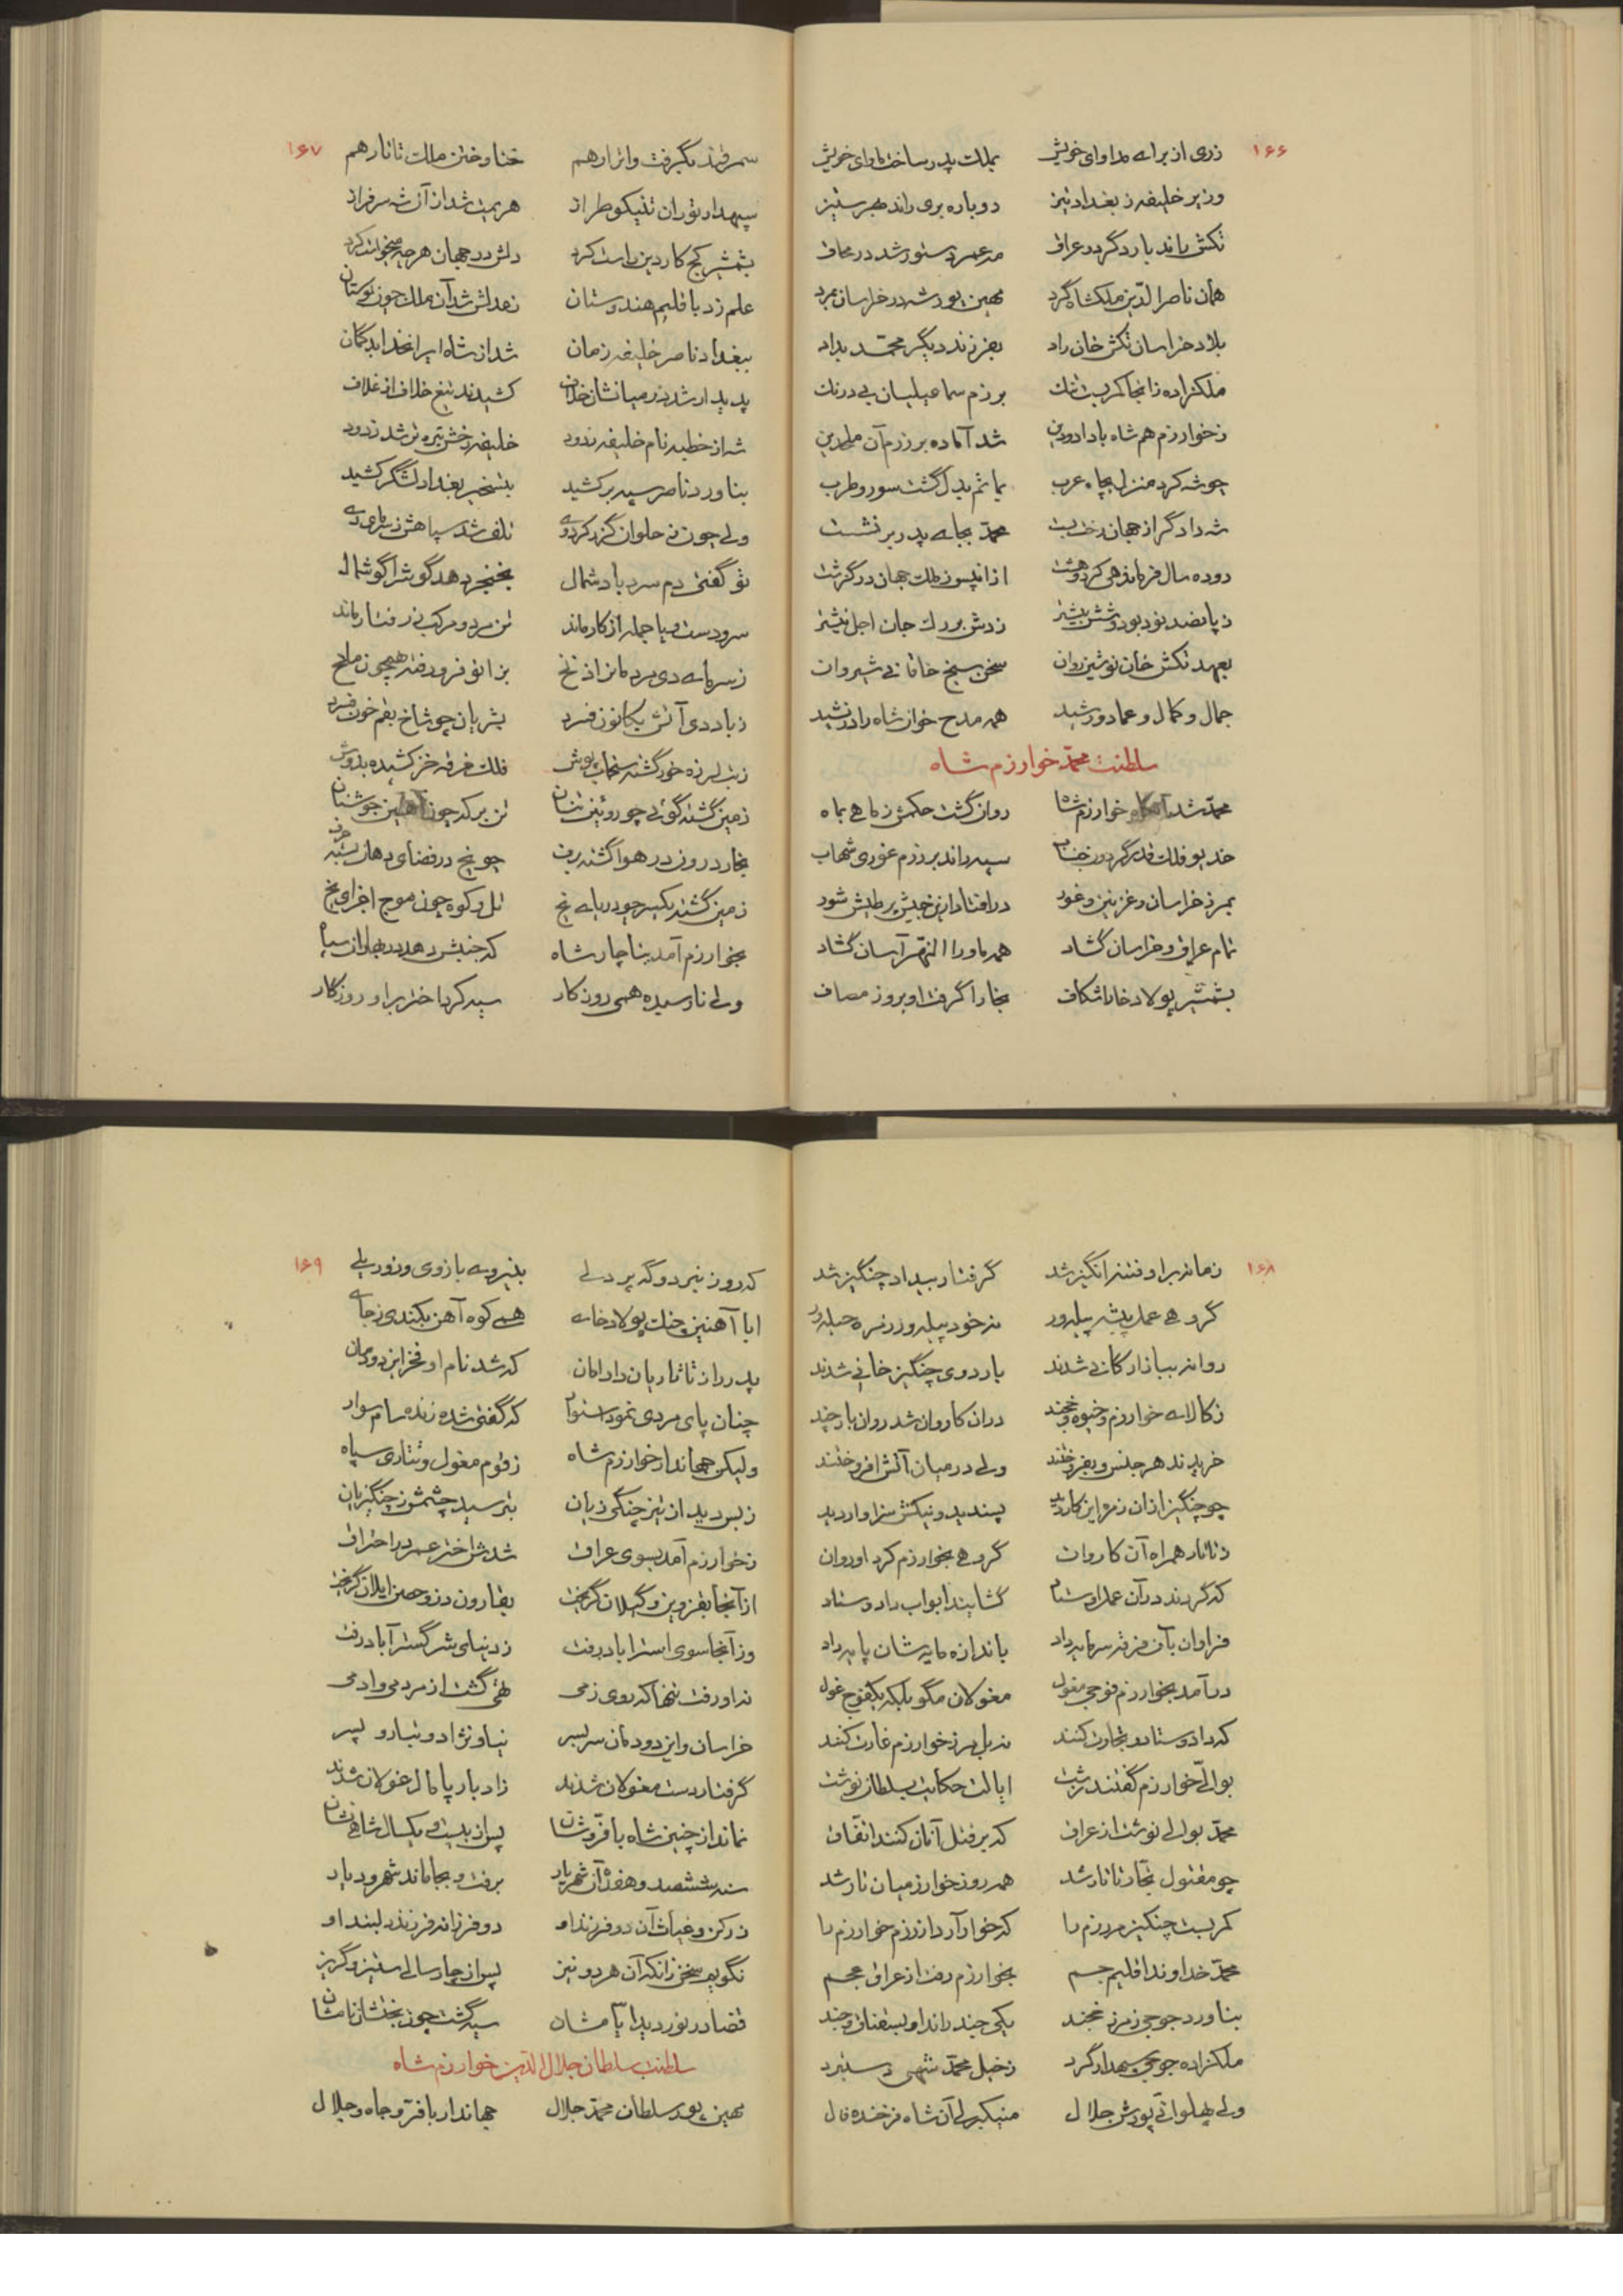 ۱۶۶
زری از برای مداوای خویش بملک پدر ساخت ماوای خویش
وزیر خلیفه ز بغداد نیز دوباره بری راند بهر ستیز
تکش راند بار دگر در عراق
همان ناصر الدین ملکشاه گرد مهین پور شه در خراسان بمرد
بلاد خراسان تکش خان راد بفرزند دیگر محمد بداد
ملکزاده زانجا کمر بست تنک برزم سماعیلیان بی درنک
ز خوارزم هم شاه با داد و دین شد آماده بر رزم آن ملحدین
چو شه کرد منزل بچاه عرب بماتم بدل گشت سور و طرب
شه دادگر از جهان رخت بست محمد بجای پدر بر نشست
دوده سال فرماندهی کرد و هشت ازانپس ز ملک جهان درگذشت
ز پانصد نود بود و شش بیشتر زدش بر رک جان اجل نیشتر
بعهد تکش خان نوشین روان سخن سنج خاقانی شیروان
جمال و کمال و عماد و رشید همه مدح خوان شاه را در نشید
سلطنت محمد خوارزم شاه
محمد شد آنگاه خوارزم شاه روان گشت حکمش ز ماهی بماه
خدیو فلک قدر گردون جناب سپه راند بر رزم غوری شهاب
بمرز خراسان و غزنین و غور در افتاد ازین جیش پر طیش شور
تمام عراق و خراسان گشاد همه ماوراء النهر آسان گشاد
بشمشیر پولاد خارا شکاف بخارا گرفت او بروز مصاف
۱۶۷
سمرقند بگرفت و اترار هم ختا و ختن ملک تاتار هم
سپهدار توران تنیکو طراز هزیمت شد از آن شه سرفراز
بشمشیر کج کار دین راست کرد دلش در جهان هر چه میخواست کرد
علم زد باقلیم هندوستان ز عدلش شد آن ملک چون بوستان
ببغداد ناصر خلیفه زمان شد از شاه ایرانخدا بدگمان
پدیدار شد در میانشان خلاف کشیدند تیغ خلاف از غلاف
شه از خطبه نام خلیفه زدود خلیفه رخش تیره شد ز دود
بناورد ناصر سپه بر کشید بتسخیر بغداد لشگر کشید
ولی چون ز حلوان گذر کرد وی تلف شد سپاهش ز سرمای دی
تو گفتی دم سرد باد شمال بخنجر دهد گوش را گوشمال
سر و دست و پا جمله از کار ماند تن مرد و مرکب ز رفتار ماند
ز سرمای دی مرد مانرا ز تخ بزانو فرو رفته همچون ملخ
ز باد دی آتش بکانون فسرد بشریان چو شاخ بقم خون فسرد
ز تب لرزه خور گشته سنجاب پوش فلک خرقه خز کشیده بدوش
زمین گشته گوئی چو روئین تنان تن برکه چون آهنین جوشنان
بخار درون در هوا گشته برف چو یخ در فضای دهان بسته حرف
زمین گشته یکسر چو دریای یخ تل و کوه چون موج اجزای یخ
بخوارزم آمد بناچار شاه که جنبش دهد در بهاران سپاه
ولی نارسیده همی روز کار سیه کرد اختر بر او روزگار
۱۶۸
زمانه بر او فتنه انگیز شد گرفتار بیداد چنگیز شد
گروهی عمل پیشه پیله ور
روانه ببازارگانی شدند باردوی چنگیز خانی شدند
ز کالای خوارزم و خیوه و خجند دران کاروان شد روان بار چند
خریدند هر جنس و بفروختند ولی در میان آتش افروختند
چو چنگیز ازان زمره این کار دید پسندید و نیکش سزاوار دید
ز تاتار همراه آن کاروان گروهی بخوارزم کرد او روان
که گردند در آن عمل اوستاد گشایند ابواب داد و ستاد
فراوان بآن فرقه سرمایه داد باندازه مایه شان پایه داد
در آمد بخوارزم فوجی مغول مغولان مگو بلکه یکفوج غول
که داد و ستاد و تجارت کنند نه بل مرز خوارزم غارت کنند
بوالی خوارزم گفتند زشت ایالت حکایت بسلطان نوشت
محمد بوالی نوشت از عراق که بر قتل آنان کنند اتفاق
چو مقتول تجار تاتار شد همه روز خوارزمیان تار شد
کمر بست چنگیز مر رزم را که خوار آرد از رزم خوارزم را
محمد خداوند اقلیم جم بخوارزم رفت از عراق عجم
بناورد جوجی ز مرز خجند یکی چند راند او بسقناق و جند
ملکزاده جوجی سپهدار گرد ز خیل محمد شهی دستبرد
ولی پهلوانی پورش جلال منکبرلی آن شاه فرخنده فال
۱۶۹
که روز نبرد و گه پر دلی بنیروی بازوی و زور یلی
ابا آهنین جنک پولاد خای همی کوه آهن بکندی ز جای
پدر را ز تاتاریان داد امان که شد نام او فخر این دودمان
چنان پای مردی نمود استوار که گفتی شده زنده سام سوار
ولیکن جهاندار خوارزم شاه ز قوم مغول و تتاری سپاه
ز بس دید از تیز چنگی زیان بترسید چشمش ز چنگیزیان
ز خوارزم آمد بسوی عراق شدش اختر عمر در احتراق
از آنجا بقزوین و گیلان گریخت بقارون دز و حصن ایلان گریخت
وز آنجا سوی استراباد رفت ز دنیای شر گستر آباد رفت
نه او رفت تنها که روی زمی تهی گشت از مردمی و ادمی
خراسان و این دودمان سر بسر نیا و نژاد و تبار و پسر
گرفتار دست مغولان شدند ز ادبار پامال غولان شدند
نماند از چنین شاه با فر و شان پس از بیست و یکسال شاهی نشان
سنه ششصد و هفده آن شهریار برفت و بجا ماند شهر و دیار
ز رکن و غیاث آن دو فرزند او دو فرزانه فرزند دلبند او
نگویم سخن زانکه آن هر دو نیز پس از چار سالی ستیز و گریز
قضا در نوردید ایامشان سیه گشت چون بختشان نامشان
سلطنت سلطان جلال الدین خوارزم شاه
مهین پور سلطان محمد جلال جهاندار با فر و جاه و جلال